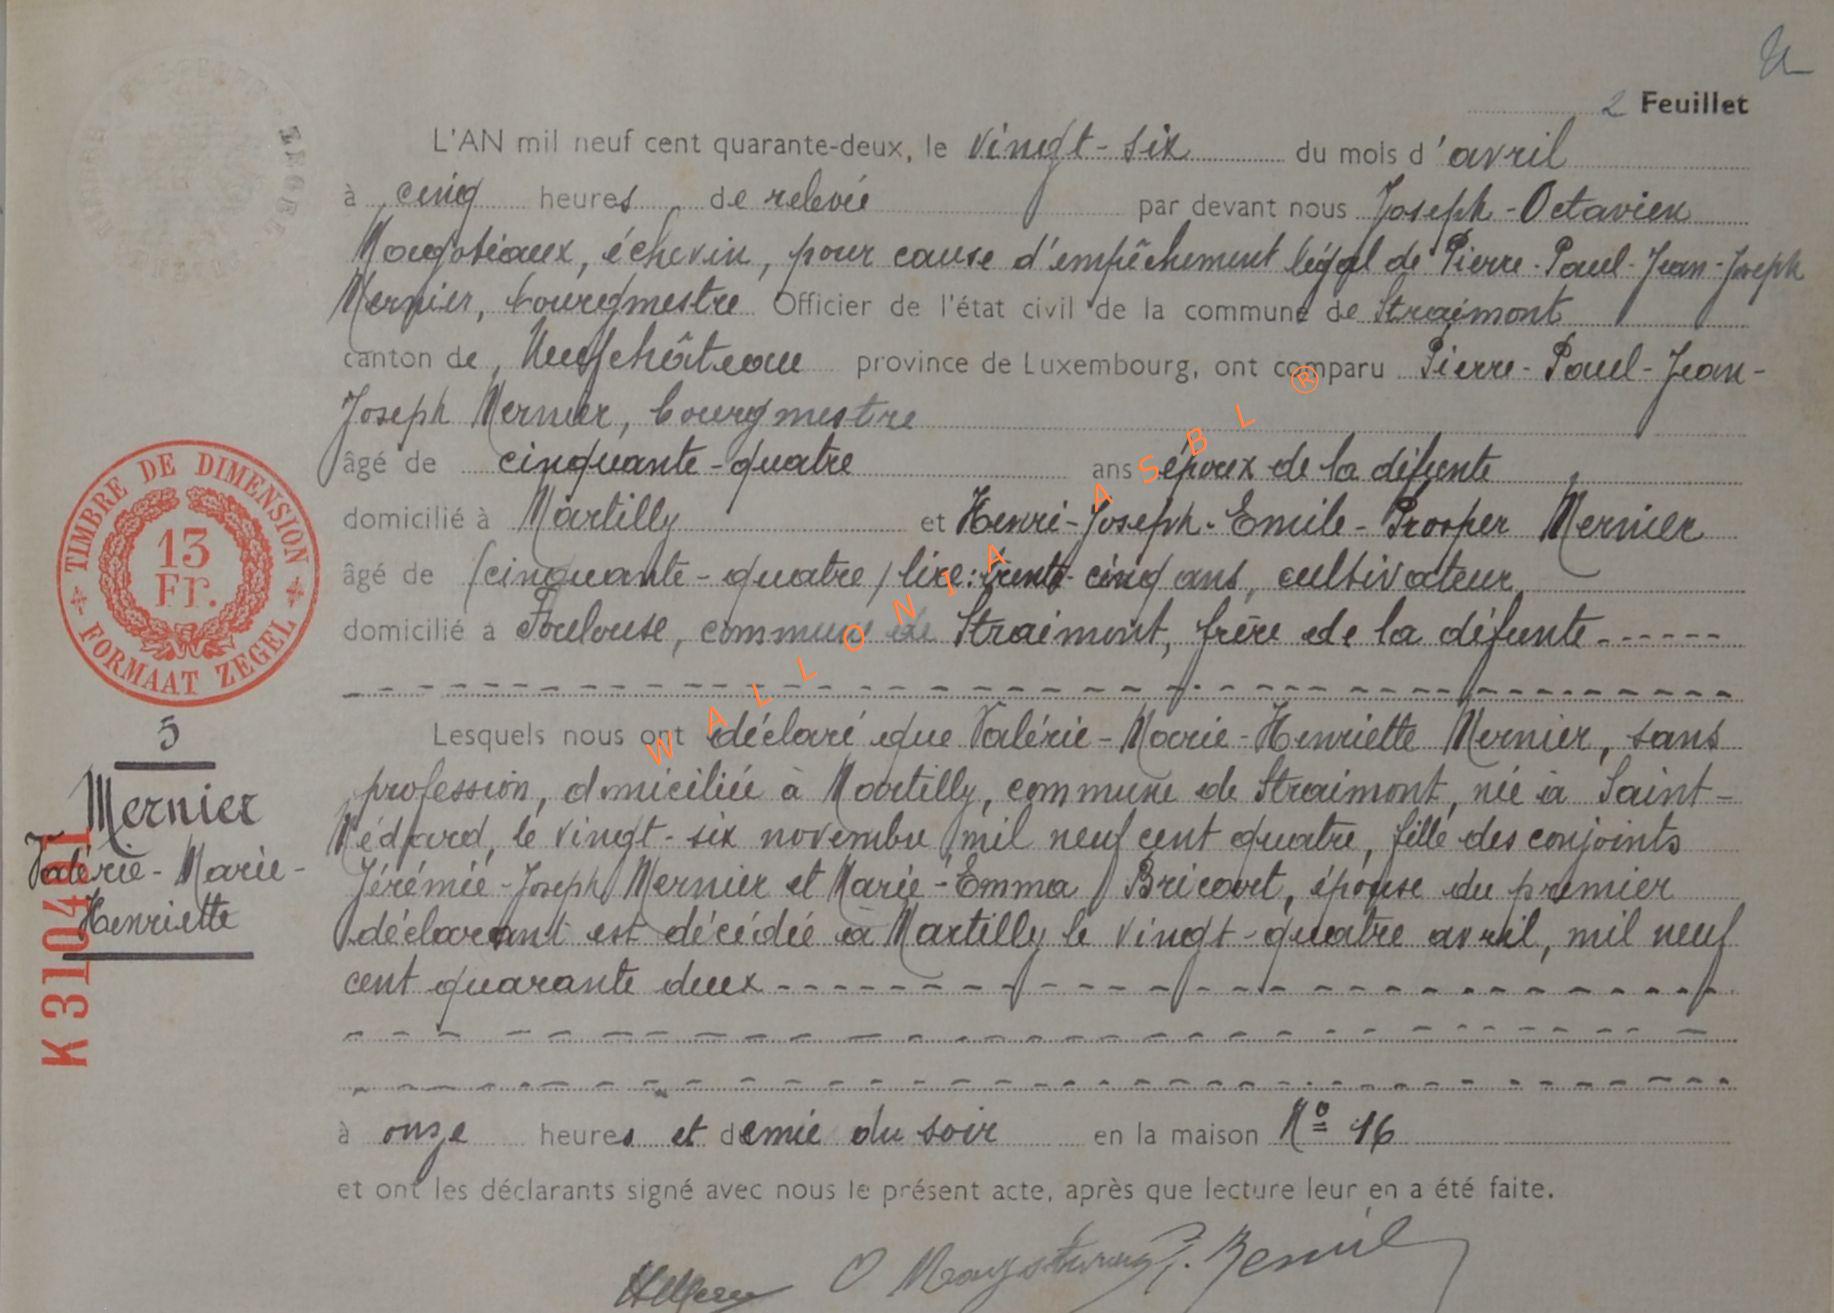 2 Feuillet
L'AN mil neuf cent quarante-deux, le vingt-six du mois d'avril
à cinq heures de relevée par devant nous Joseph-Octavien
échevin, pour cause d'empêchement légal de Pierre-Paul-Jean-Joseph
Mernier, bourgmestre Officier de l'état civil de la commune de Straimont
canton de Neufchâteau province de Luxembourg, ont comparu Pierre-Paul-Jean-
Joseph Mernier, bourgmestre
âgé de cinquante-quatre ans époux de la défunte
domicilié à Martilly et Henri-Joseph-Emile-Prosper Mernier
âgé de (cinquante-quatre) lire: trente-cinq ans, cultivateur
domicilié à Foulouse, commune de Straimont, frère de la défunte
Lesquels nous ont déclaré que Valérie-Marie-Henriette Mernier, sans
profession, domiciliée à Martilly, commune de Straimont, née à Saint-
Médard, le vingt-six novembre mil neuf cent quatre, fille des conjoints
Jérémie-Joseph Mernier et Marie-Emma Bricart, épouse du premier
déclarant est décédée à Martilly le vingt-quatre avril, mil neuf
cent quarante deux
à onze heures et demie du soir en la maison Nº 16
et ont les déclarants signé avec nous le présent acte, après que lecture leur en a été faite.
TIMBRE DE DIMENSION
13
Fr.
FORMAAT ZEGEL
5
Mernier
Valérie-Marie-
Henriette
K 310401
WALLONIA ASBL ®